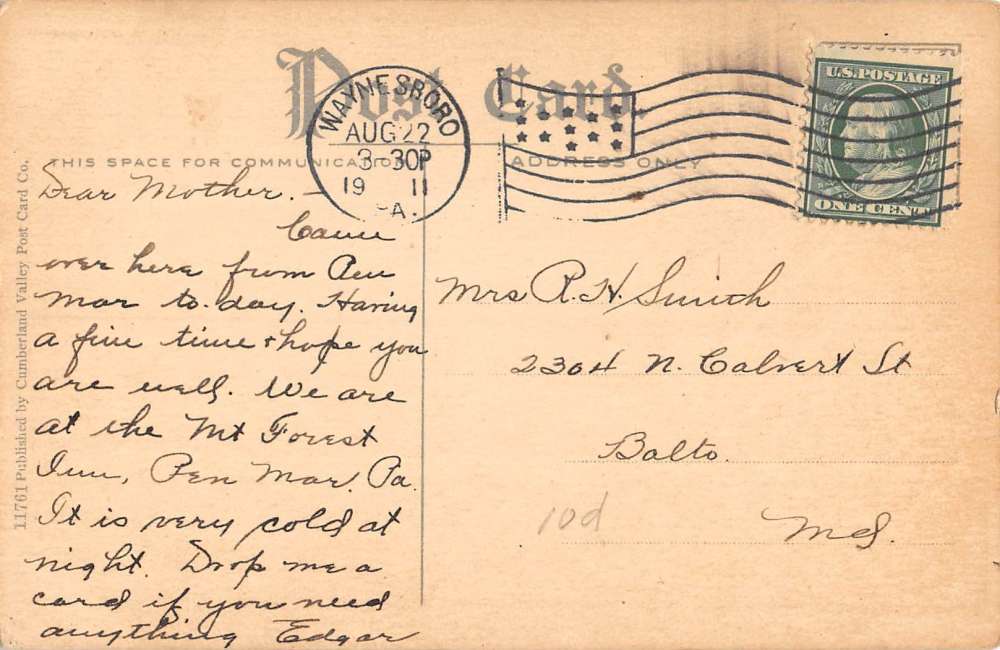 Post Card
WAYNESBORO
AUG 22
3-30P
19 11
PA.
U.S. POSTAGE
ONE CENT
THIS SPACE FOR COMMUNICATION
ADDRESS ONLY
11761 Published by Cumberland Valley Post Card Co.
Dear Mother. –
Came
over here from Pen
Mar to-day. Having
a fine time & hope you
are well. We are
at the Mt Forest
Inn, Pen Mar. Pa.
It is very cold at
night. Drop me a
card if you need
anything Edgar
Mrs R. H. Smith
2304 N. Calvert St
Balto.
Md.
10d